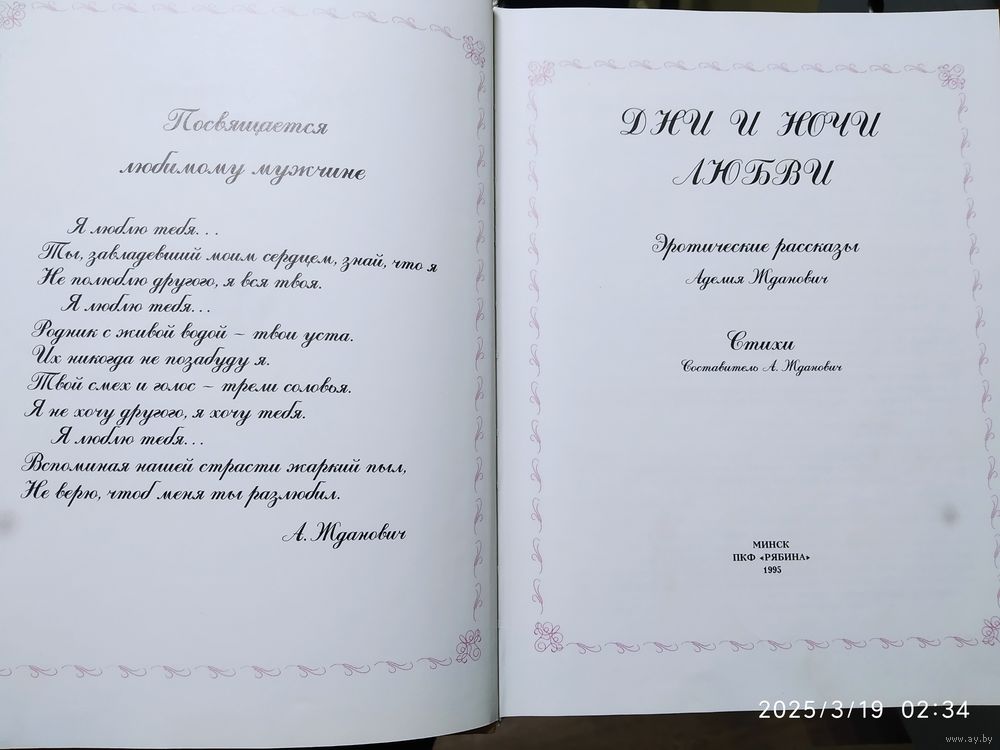 Посвящается
любимому мужчине
Я люблю тебя...
Ты, завладевший моим сердцем, знай, что я
Не полюблю другого, я вся твоя.
Я люблю тебя...
Родник с живой водой – твои уста.
Их никогда не позабуду я.
Твой смех и голос – трели соловья.
Я не хочу другого, я хочу тебя.
Я люблю тебя...
Вспоминая нашей страсти жаркий пыл,
Не верю, чтоб меня ты разлюбил.
А. Жданович
ДНИ И НОЧИ
ЛЮБВИ
Эротические рассказы
Аделия Жданович
Стихи
Составитель А. Жданович
МИНСК
ПКФ «РЯБИНА»
1995
2025/3/19 02:34
www.ay.by